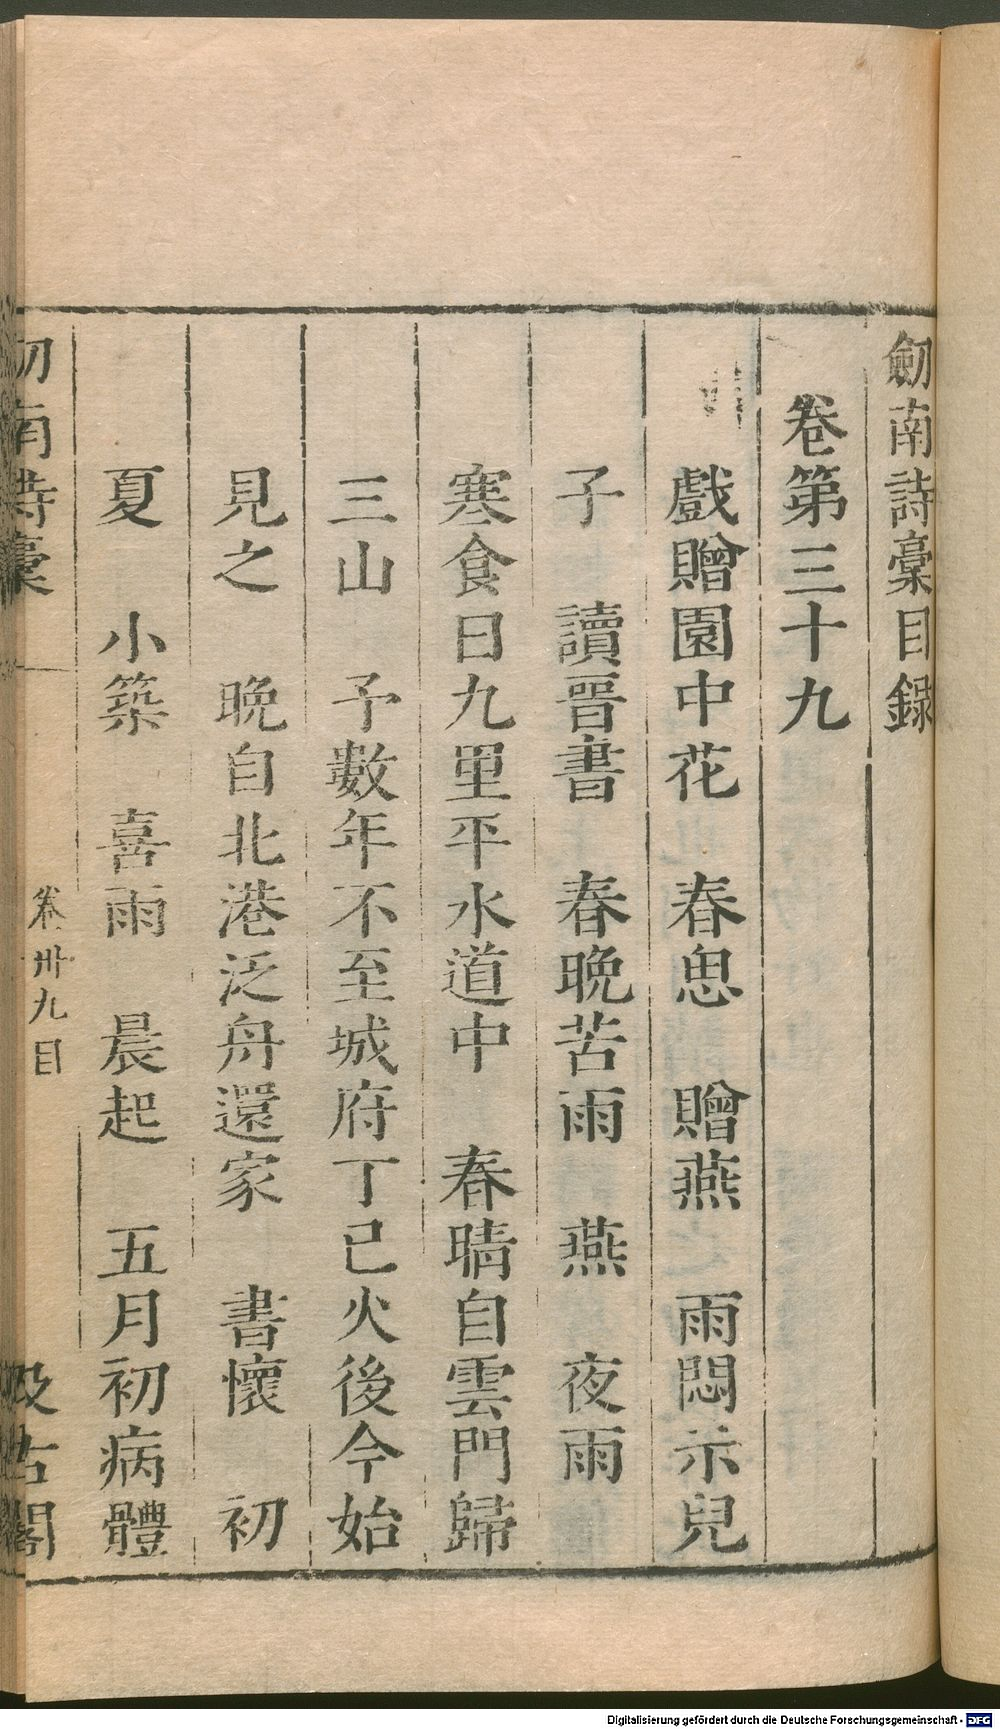 劒南詩稾目録
卷第三十九
戲贈園中花　春思　贈燕　雨悶示兒
子　讀晉書　春晚苦雨　燕　夜雨
寒食日九里平水道中　春晴自雲門歸
三山　予數年不至城府丁巳火後今始
見之　晚自北港泛舟還家　書懷　初
夏　小築　喜雨　晨起　五月初病體
劒南詩稾
卷卅九目
汲古閣
Digitalisierung gefördert durch die Deutsche Forschungsgemeinschaft - DFG